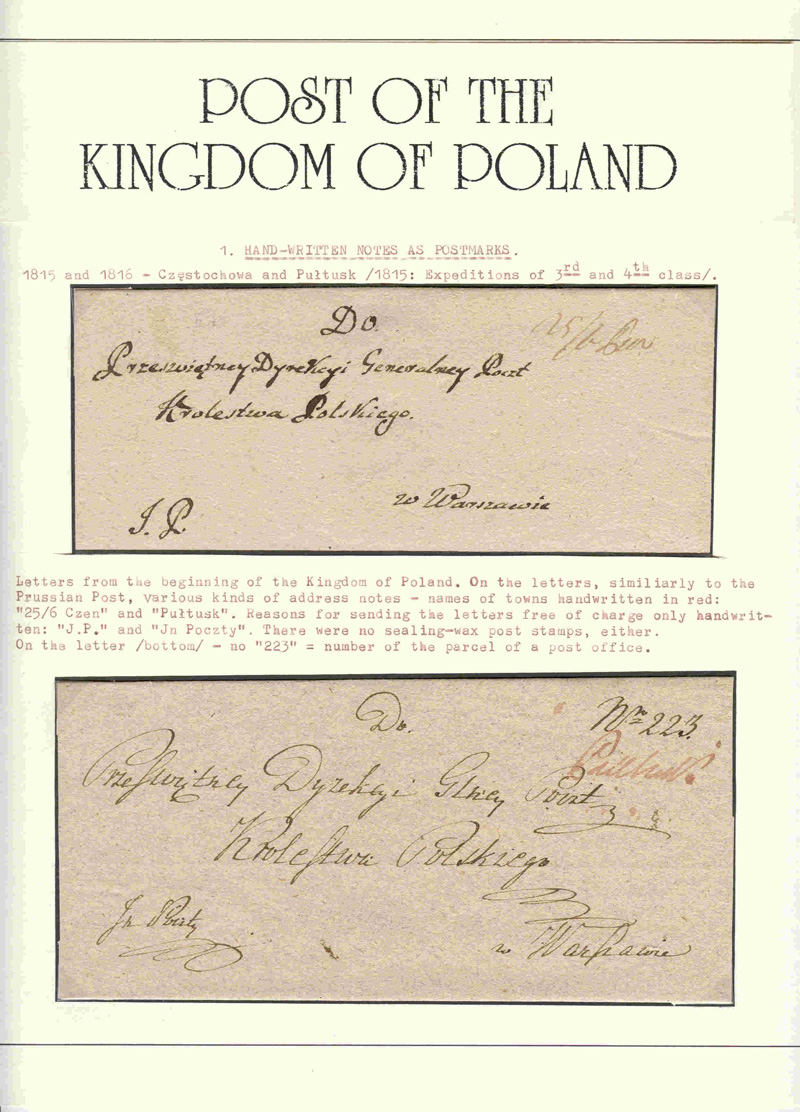 POST OF THE
KINGDOM OF POLAND
1. HAND-WRITTEN NOTES AS POSTMARKS.
1815 and 1816 - Częstochowa and Pułtusk /1815: Expeditions of 3rd and 4th class/.
Do
25/6 Czen
Przeswiętney Dyrekcyi Generalney Poczt
Krolestwa Polskiego.
w Warszawie
J. P.
Letters from the beginning of the Kingdom of Poland. On the letters, similiarly to the
Prussian Post, various kinds of address notes - names of towns handwritten in red:
"25/6 Czen" and "Pułtusk". Reasons for sending the letters free of charge only handwrit-
ten: "J.P." and "Jn Poczty". There were no sealing-wax post stamps, either.
On the letter /bottom/ - no "223" = number of the parcel of a post office.
Do.
Nro 223.
Pułtusk
Przeswiętney Dyrekcyi Glney Poczt
Krolestwa Polskiego
Jn Poczty
w Warszawie